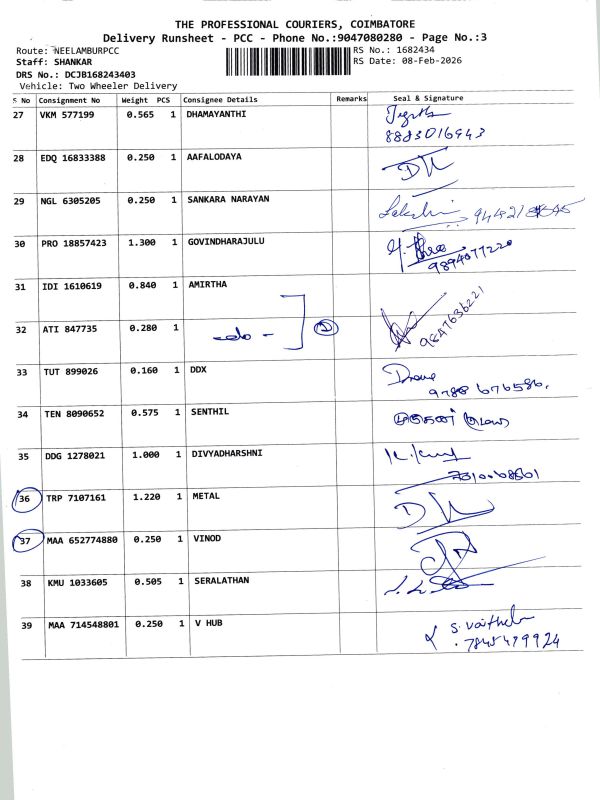 THE PROFESSIONAL COURIERS, COIMBATORE
Delivery Runsheet - PCC - Phone No.:9047080280 - Page No.:3
Route: NEELAMBURPCC RS No.: 1682434
Staff: SHANKAR RS Date: 08-Feb-2026
DRS No.: DCJB168243403
Vehicle: Two Wheeler Delivery
S No Consignment No Weight PCS Consignee Details Remarks Seal & Signature
27 VKM 577199 0.565 1 DHAMAYANTHI
8883016943
28 EDQ 16833388 0.250 1 AAFALODAYA
29 NGL 6305205 0.250 1 SANKARA NARAYAN
30 PRO 18857423 1.300 1 GOVINDHARAJULU
9894077220
31 IDI 1610619 0.840 1 AMIRTHA
32 ATI 847735 0.280 1 -do- 2
9847636221
33 TUT 899026 0.160 1 DDX
9788 676586.
34 TEN 8090652 0.575 1 SENTHIL
35 DDG 1278021 1.000 1 DIVYADHARSHNI
7310068601
36 TRP 7107161 1.220 1 METAL
37 MAA 652774880 0.250 1 VINOD
38 KMU 1033605 0.505 1 SERALATHAN
39 MAA 714548801 0.250 1 V HUB
7845479924